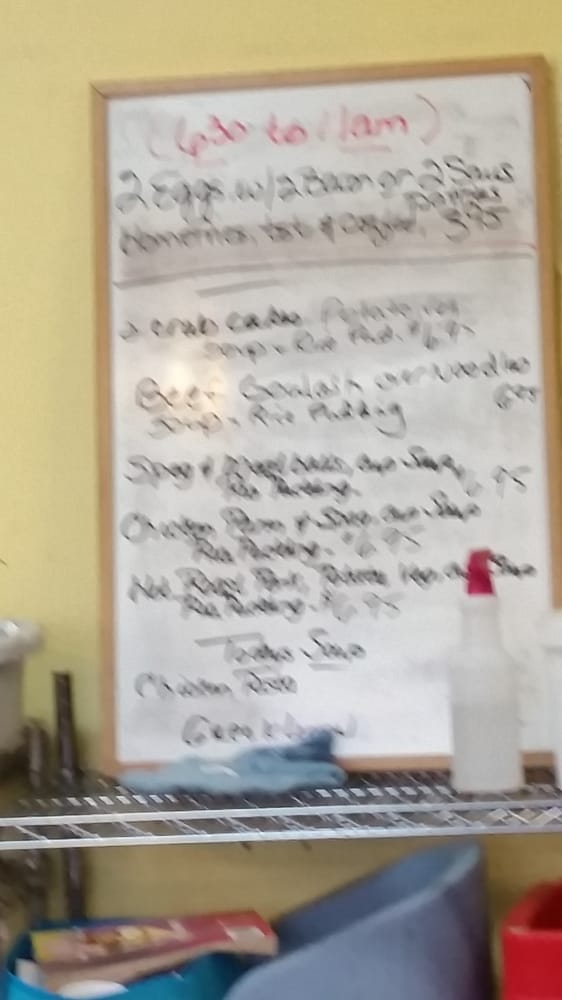 (630 to 11am)
2 Eggs w/ 2 Bacon or 2 Saus
patties
Homefries, tst & Coffee, 3.95
2 crab cakes, Potato, veg
soup - Rice Pud. $6.95
Beef Goulash over Noodles
soup - Rice Pudding 6.95
Spag & Meatballs, cup Soup,
Rice Pudding. 6.95
Chicken Parm & Spag, cup Soup
Rice Pudding. $6.95
Hot Roast Pork, Potatoe, Veg, cup Soup
Rice Pudding - $6.95
Todays Soup
Chicken Pasta